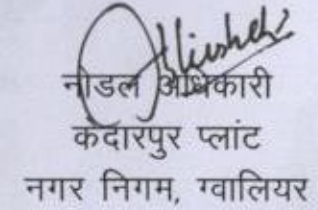 नोडल अधिकारी
केदारपुर प्लांट
नगर निगम, ग्वालियर